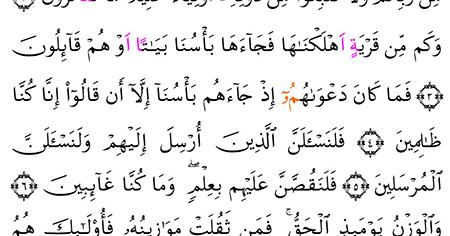 وَكَم مِّن قَرْيَةٍ اَهْلَكْنَٰهَا فَجَآءَهَا بَأْسُنَا بَيَٰتًا اَوْ هُمْ قَآئِلُونَ
﴿٣﴾ فَمَا كَانَ دَعْوَىٰهُمُۥٓ إِذْ جَآءَهُم بَأْسُنَآ إِلَّآ أَن قَالُوٓاْ إِنَّا كُنَّا
ظَٰلِمِينَ ﴿٤﴾ فَلَنَسْـَٔلَنَّ ٱلَّذِينَ أُرْسِلَ إِلَيْهِمْ وَلَنَسْـَٔلَنَّ
ٱلْمُرْسَلِينَ ﴿٥﴾ فَلَنَقُصَّنَّ عَلَيْهِم بِعِلْمٍۖ وَمَا كُنَّا غَآئِبِينَ ﴿٦﴾
وَٱلْوَزْنُ يَوْمَئِذٍ ٱلْحَقُّۚ فَمَن ثَقُلَتْ مَوَٰزِينُهُۥ فَأُوْلَٰٓئِكَ هُمُ